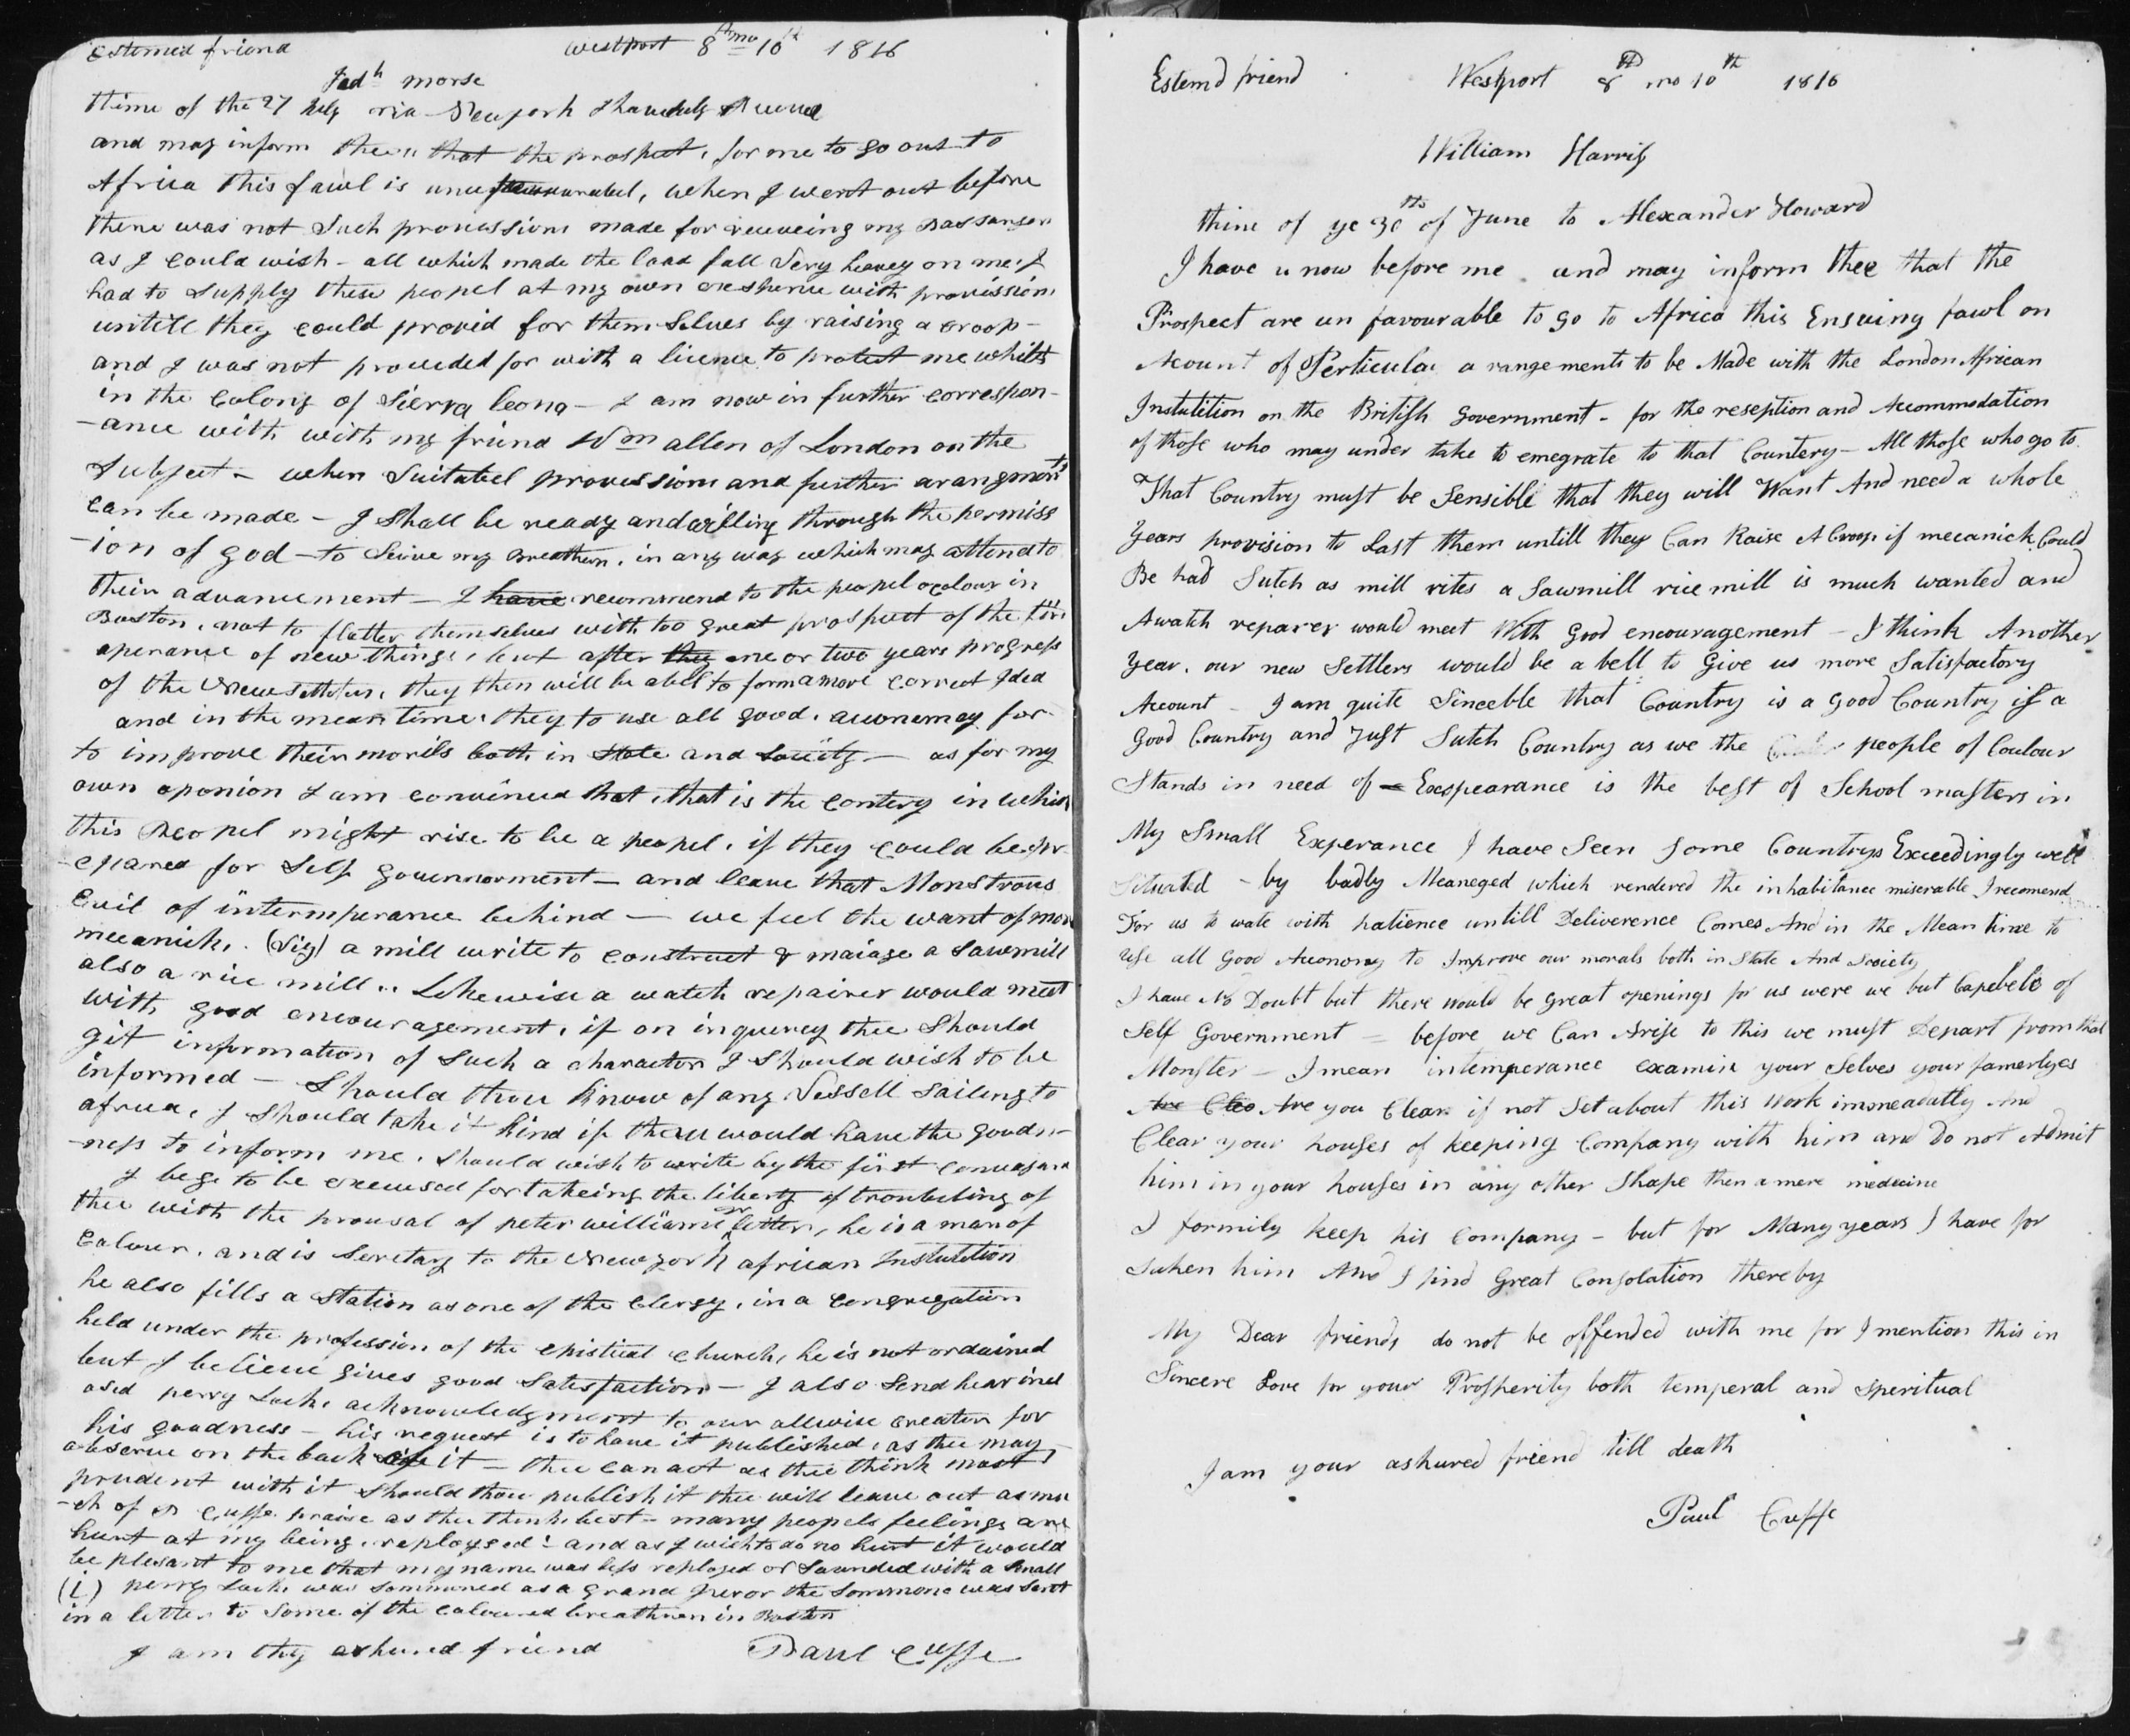 Estemed friend Westport 8th mo 10th 1816
Jedh morse
thine of the 27 July via Newyork I have duly Received
and may inform thee that the prospect, for me to go out to
Africa this fawl is unfavourabel, when I went out before
there was not Such provissions made for receiveing my Passanger
as I could wish - all which made the load fall Very heavey on me: I
had to Supply these peopel at my own exspence with provissions
untill they could provid for themSelves by raising a croop -
and I was not provided for with a licence to protect me whilst
in the Colony of Sierra leona - I am now in further correspon-
-ance with with my friend Wm allen of London on the
Subject - when Suitabel provissions and further arangments
can be made - I Shall be ready and willing through the permiss
-ion of god - to Serve my Breathren, in any way which may attend to
their advancement - I have recommend to the peopel ocolour in
Boston, not to flatter themselves with too great prospect of the
aperance of new things, but after they one or two years progress
of the New Settelers, they then will be abell to form a more correct Idea
and in the mean time, they to use all good, aconemay for
to improve their morils both in State and Society - as for my
own oponion I am convinced that, that is the contery in which
this Peopel might rise to be a peopel, if they could be pr
-epared for Self government - and leave that Monstrous
Evil of intermperance behind - we feel the want of more
mecanicks. (Viz) a mill write to construct & manage a Sawmill
also a rice mill.. Likewise a watch repairer would meet
with good encouragement, if on inquerey thee Should
git information of Such a charactor I Should wish to be
informed - Should thou know of any Vessell Sailing to
africa, I Should take it kind if thou would have the goodn-
-ness to inform me, Should wish to write by the first conveyance
I begs to be excused for takeing the liberty of troubeling of
thee with the prousal of peter williams Jr letter, he is a man of
Colour, and is Secretary to the Newyork african Institution
he also fills a Station as one of the Clergy, in a congregation
held under the profession of the epistical church, he is not ordained
but I believe gives good Satisfaction - I also Send hear incl
osed perry Locks acknowledgment to our allwise creator for
his goodness - his request is to have it published, as thee may
observe on the back of it - thee can act as thee think most
prudent with it Should thou publish it thee will leave out as mu
-ch of P Cuffe praise as thee think best - many peopels feelings are
hurt at my being replaysed: and as I wish to do no hurt it would
be plesant to me that my name was less replased or Sounded with a Small
(i) perry Locks was Sommoned as a grand Juror the Sommons was Sent
in a letter to Some of the coloured breathren in Boston
I am thy ashured friend Paul Cuffe
Estemd friend Westport 8th mo 10th 1816
William Harris
thine of ye 30th of June to Alexander Howard
I have u now before me and may inform thee that the
Prospect are un favourable to go to Africa this Ensuing fawl on
Acount of Perticular a rangements to be Made with the London African
Instutition on the British Government - for the reseption and Accommodation
of those who may under take to emegrate to that Countery - All those who go to
That Country must be Sensible that they will Want And need a whole
Years provision to Last them untill they Can Raise A Croop if mecanick Could
Be had Sutch as mill rites a Sawmill rice mill is much wanted and
A watch reparer would meet With Good encouragement - I think Another
Year. our new Settlers would be a bell to Give us more Satisfactory
Account - I am quite Sinceble that Country is a Good Country if a
Good Country and Just Sutch Country as we the people of Coulour
Stands in need of - Exspearance is the best of School masters in
My Small Experance I have Seen Some Countrys Exceedingly well
Situated - by badly Meaneged which rendered the inhabitance miserable I recomend
For us to wate with Patience untill Deliverence Comes And in the Mean time to
Use all Good Aconomy to Improve our morals both in State And Society
I have No Doubt but there would be great openings for us were we but Capebele of
Self Government = before we Can Arise to this we must Depart from that
Monster - I mean intemperance examin your Selves your famerlyes
Are Clea Are you Clear if not Set about this Work immeadatly And
Clear your houses of keeping Company with him and do not Admit
him in your houses in any other Shape then a mere medicine
I formily keep his Company - but for Many years I have for
Saken him And I find Great Consolation thereby
My Dear friends do not be offended with me for I mention this in
Sincere Love for your Prosperity both temperal and Speritual
I am your ashured friend till death
Paul Cuffe